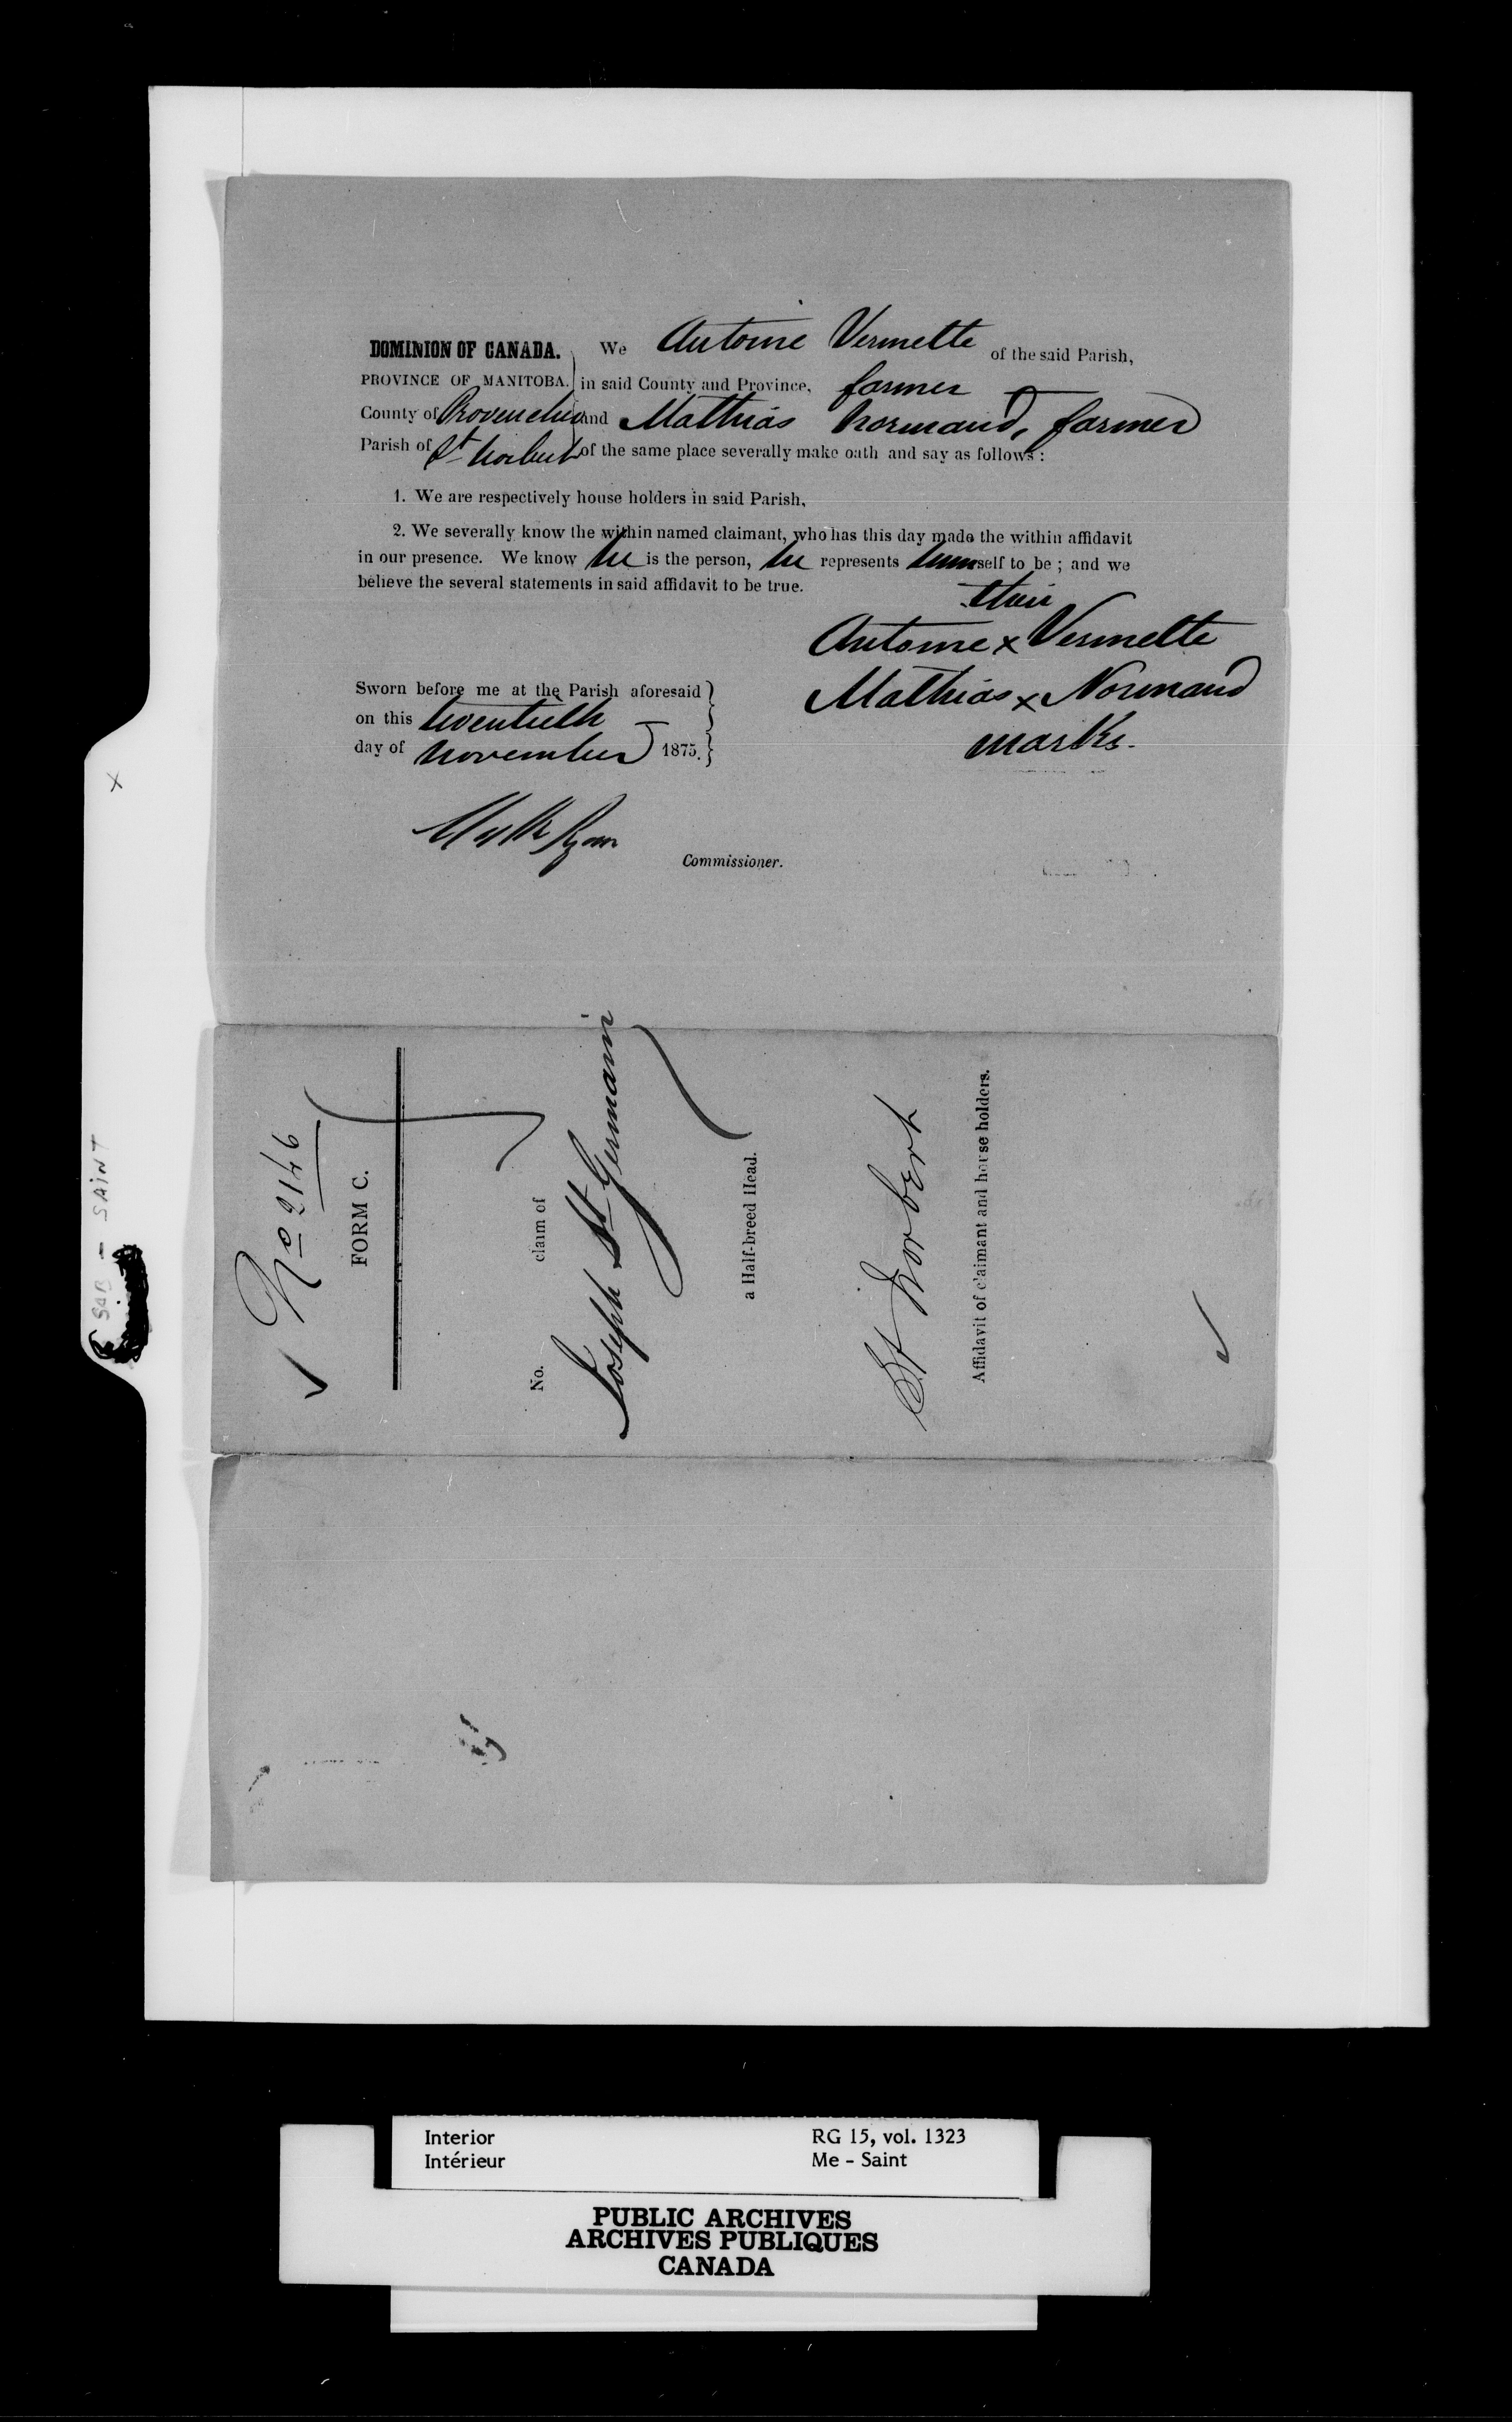 DOMINION OF CANADA. We Antoine Vermette of the said Parish,
PROVINCE OF MANITOBA. in said County and Province, farmer
County of Provencher and Mathias Normand, farmer
Parish of St Norbert of the same place severally make oath and say as follows:
1. We are respectively house holders in said Parish,
2. We severally know the within named claimant, who has this day made the within affidavit
in our presence. We know he is the person, he represents himself to be; and we
believe the several statements in said affidavit to be true.
their
Antoine x Vermette
Mathias x Normand
marks.
Sworn before me at the Parish aforesaid
on this twentieth
day of November 1875.
Ryan
Commissioner.
No 2146
FORM C.
No. claim of
Joseph St Germain
a Half-breed Head.
St Norbert
Affidavit of claimant and house holders.
x
SAB - SAINT
Interior RG 15, vol. 1323
Intérieur Me - Saint
PUBLIC ARCHIVES
ARCHIVES PUBLIQUES
CANADA